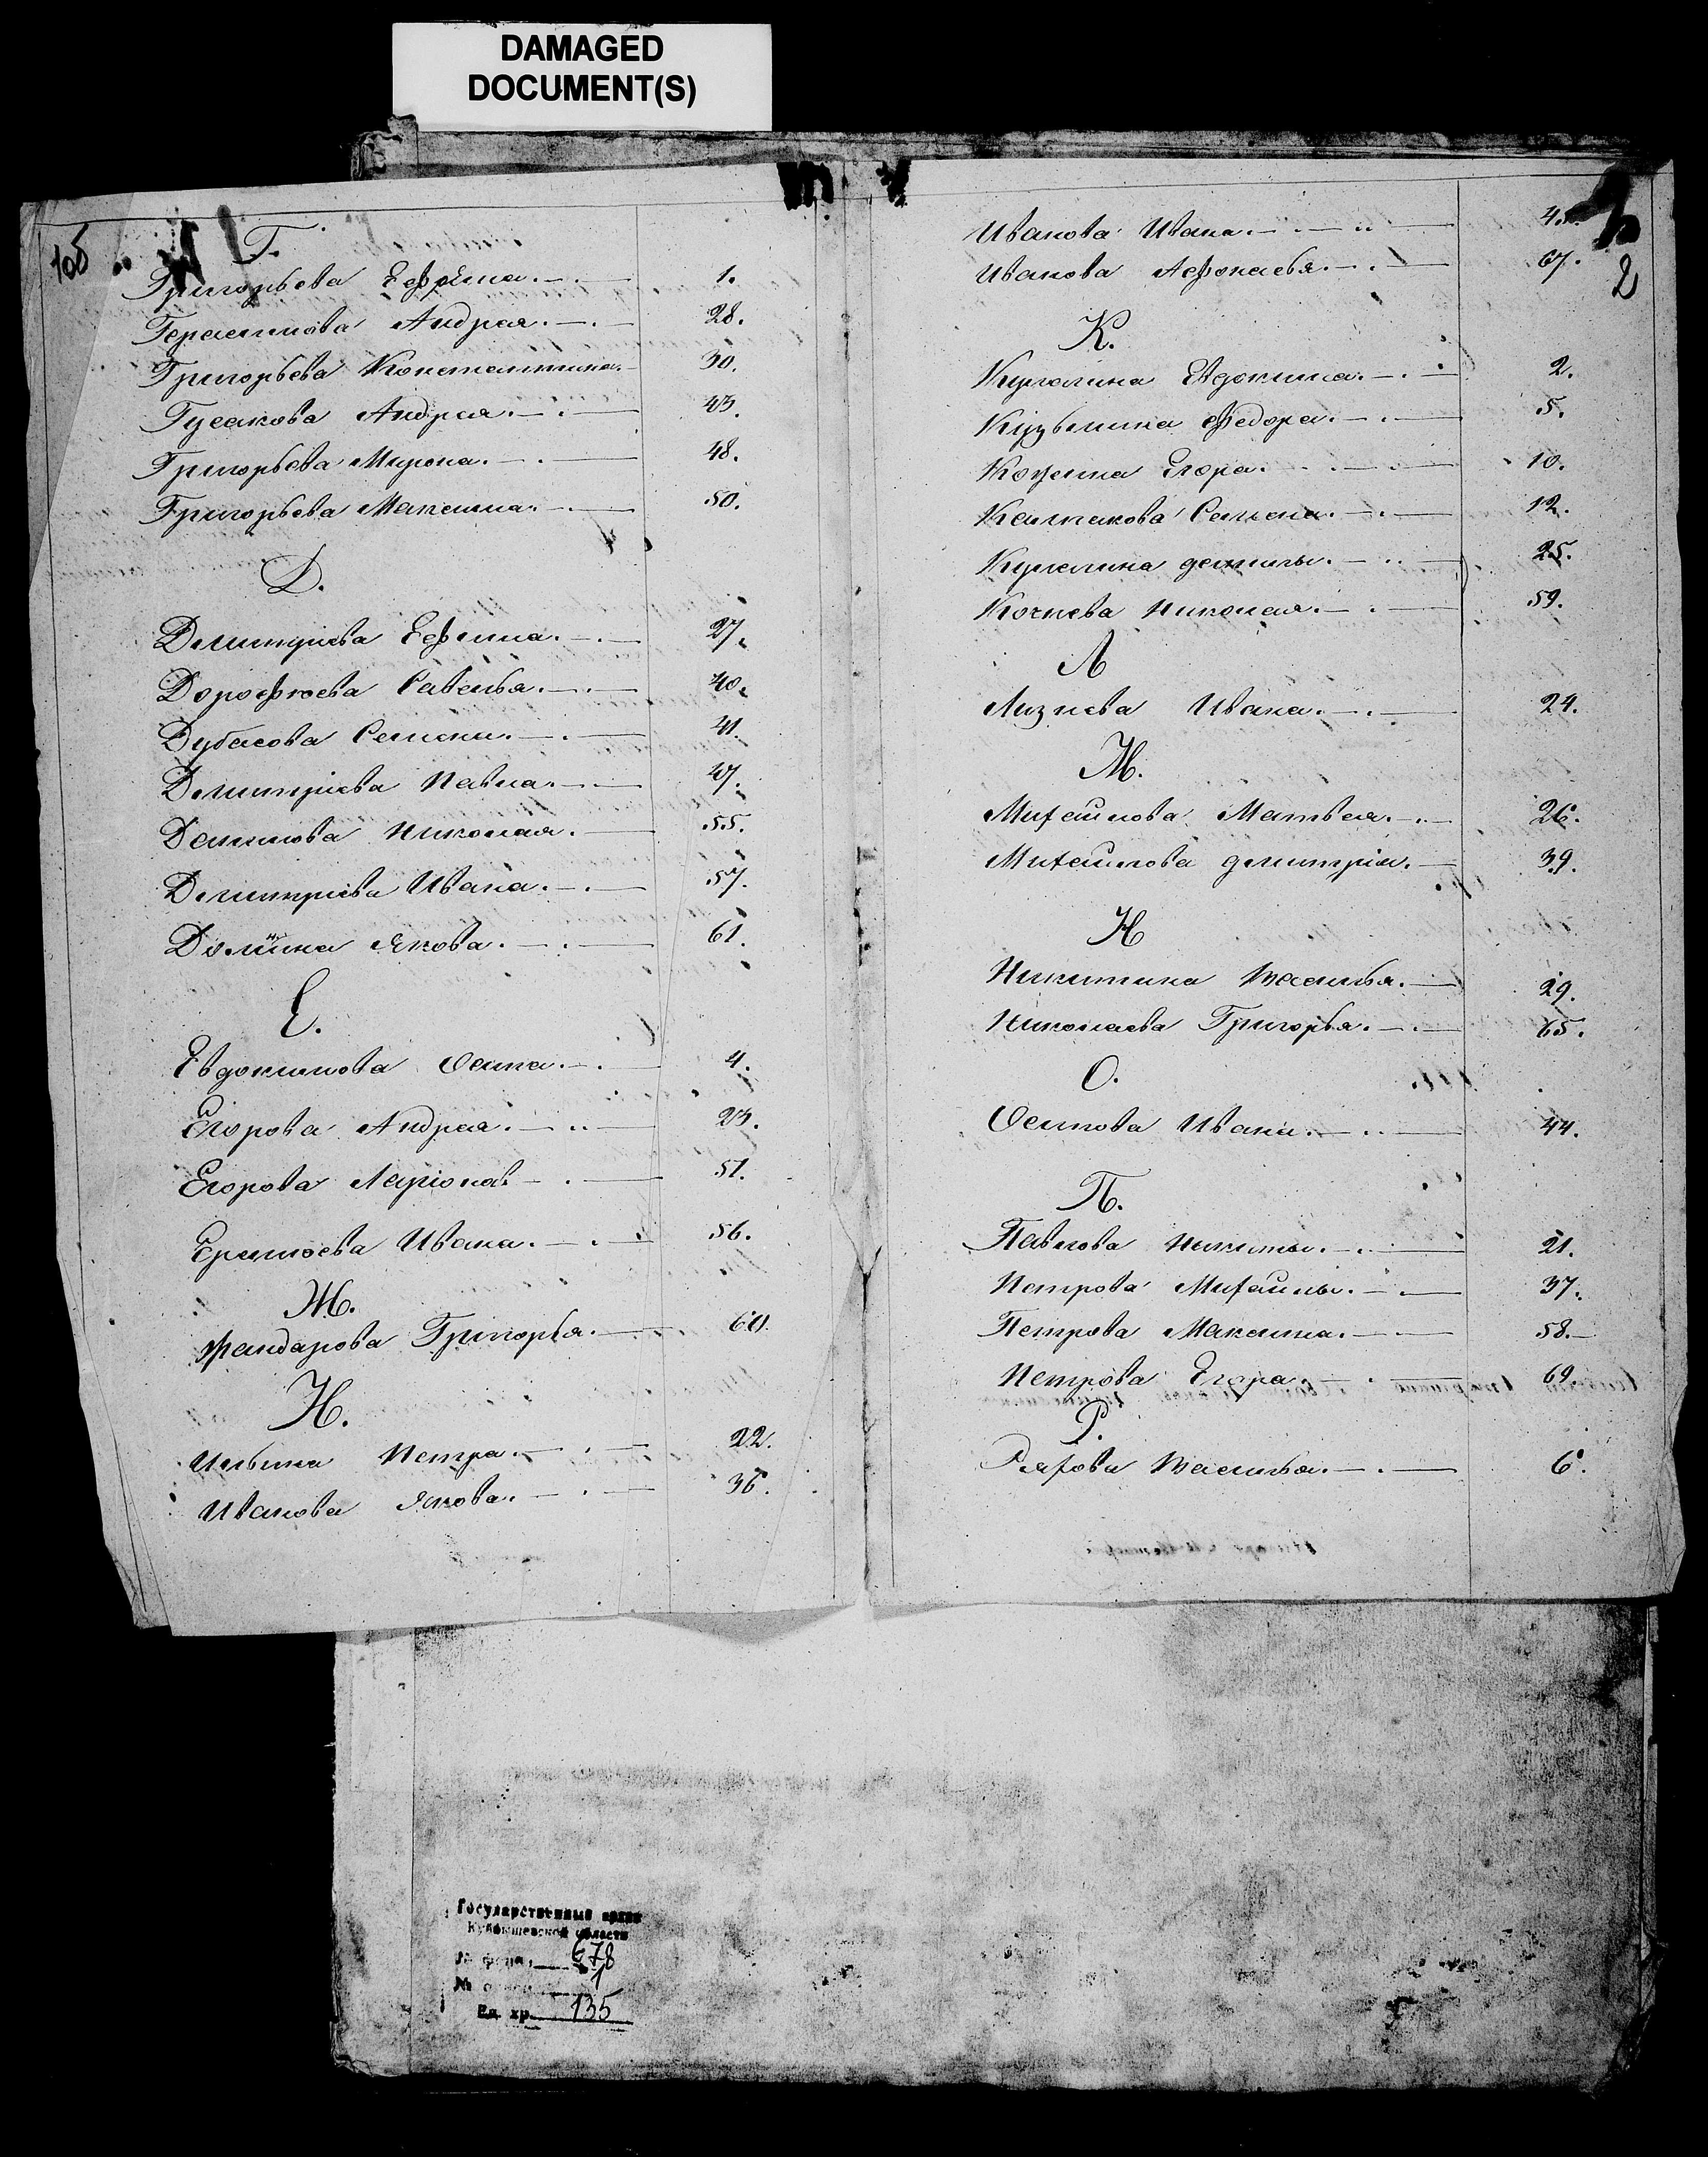 DAMAGED
DOCUMENT(S)
Г.
Григорьева Ефрема. 1.
Герасимова Андрея. 28.
Григорьева Константина. 30.
Гусакова Андрея. 43.
Григорьева Мирона. 48.
Григорьева Максима. 50.
Д.
Дмитрiева Ефима. 27.
Дорофѣева Савелья. 40.
Дубасова Семена. 41.
Дмитрiева Павла. 47.
Данилова Николая. 55.
Дмитрiева Ивана. 57.
Якова. 61.
Е.
Евдокимова Осипа. 4.
Егорова Андрея. 23.
Егорова Ларiона. 51.
Ермолаева Ивана. 56.
Ж.
Жандарова Григорья. 60.
И.
Ильина Петра. 22.
Иванова Якова. 36.
2
Иванова Ивана.
Иванова Афонасья. 67.
К.
Кургалина Евдокима. 2.
Кузьмина Федора. 5.
Козлина Егора. 10.
Калмакова Семена. 12.
Кургалина данилы. 25.
Кочнева Николая. 59.
Л
Лизнева Ивана. 24.
М.
Михайлова Матвея. 26.
Михайлова дмитрiя. 39.
Н
Никитина Василья. 29.
Николаева Григорья. 65.
О.
Осипова Ивана. 44.
П.
Павлова Никиты. 21.
Петрова Михаилы. 37.
Петрова Максима. 58.
Петрова Егора 69.
Р.
Ряхова Василья. 6.
Государственный архив
Куйбышевской области
№ фонда 678
№ описи 1
Ед. хр. 135